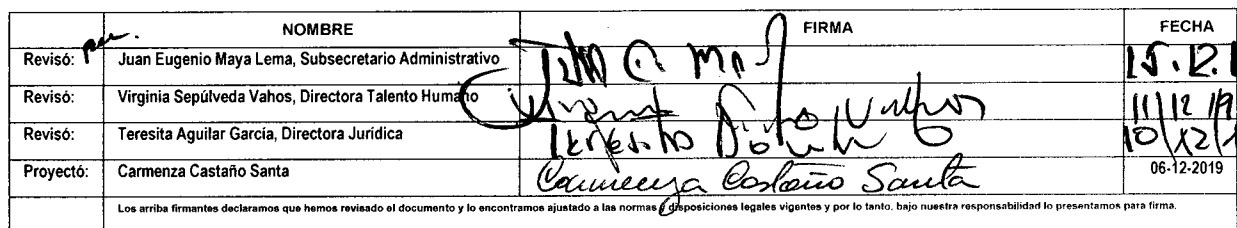 NOMBRE FIRMA FECHA
Revisó: Juan Eugenio Maya Lema, Subsecretario Administrativo 15.12.
Revisó: Virginia Sepúlveda Vahos, Directora Talento Humano 11/12/19
Revisó: Teresita Aguilar García, Directora Jurídica 10/12/1
Proyectó: Carmenza Castaño Santa Carmenza Castaño Santa 06-12-2019
Los arriba firmantes declaramos que hemos revisado el documento y lo encontramos ajustado a las normas y disposiciones legales vigentes y por lo tanto, bajo nuestra responsabilidad lo presentamos para firma.